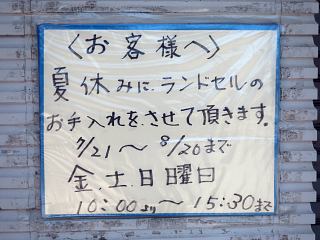 〈お客様へ〉
夏休みに、ランドセルの
お手入れをさせて頂きます。
7/21～8/20まで
金.土.日曜日
10:00より～15:30まで